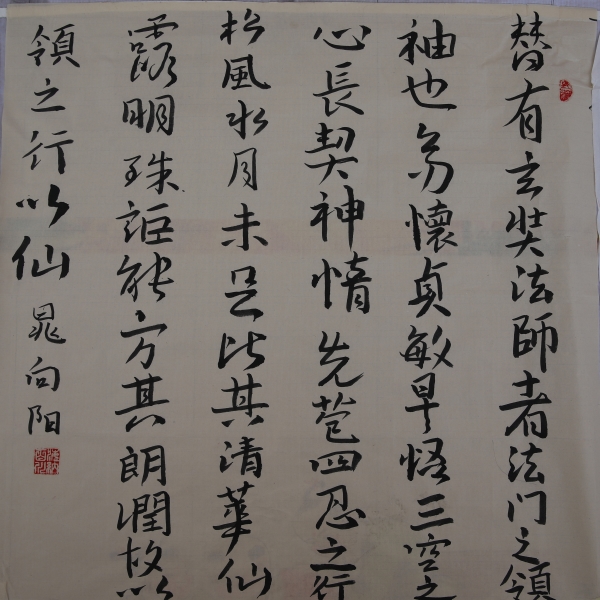 替有玄奘法師者法门之領
袖也幼懷貞敏早悟三空之
心長契神情先苞四忍之行
松風水月未足比其清華仙
露明珠詎能方其朗潤故以
領之行以仙 晁向阳